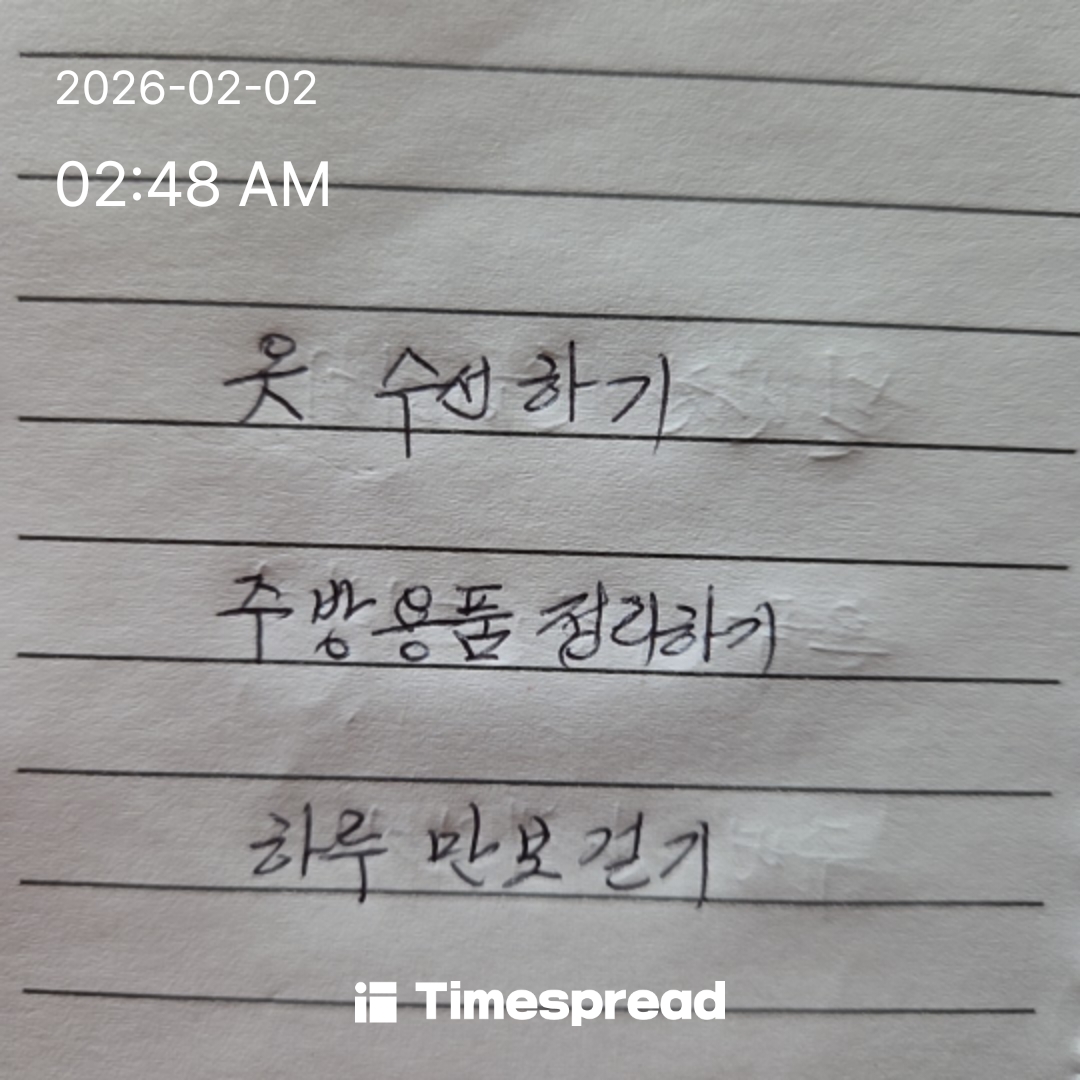 2026-02-02
02:48 AM
옷 수선하기
주방용품 정리하기
하루 만보 걷기
Timespread